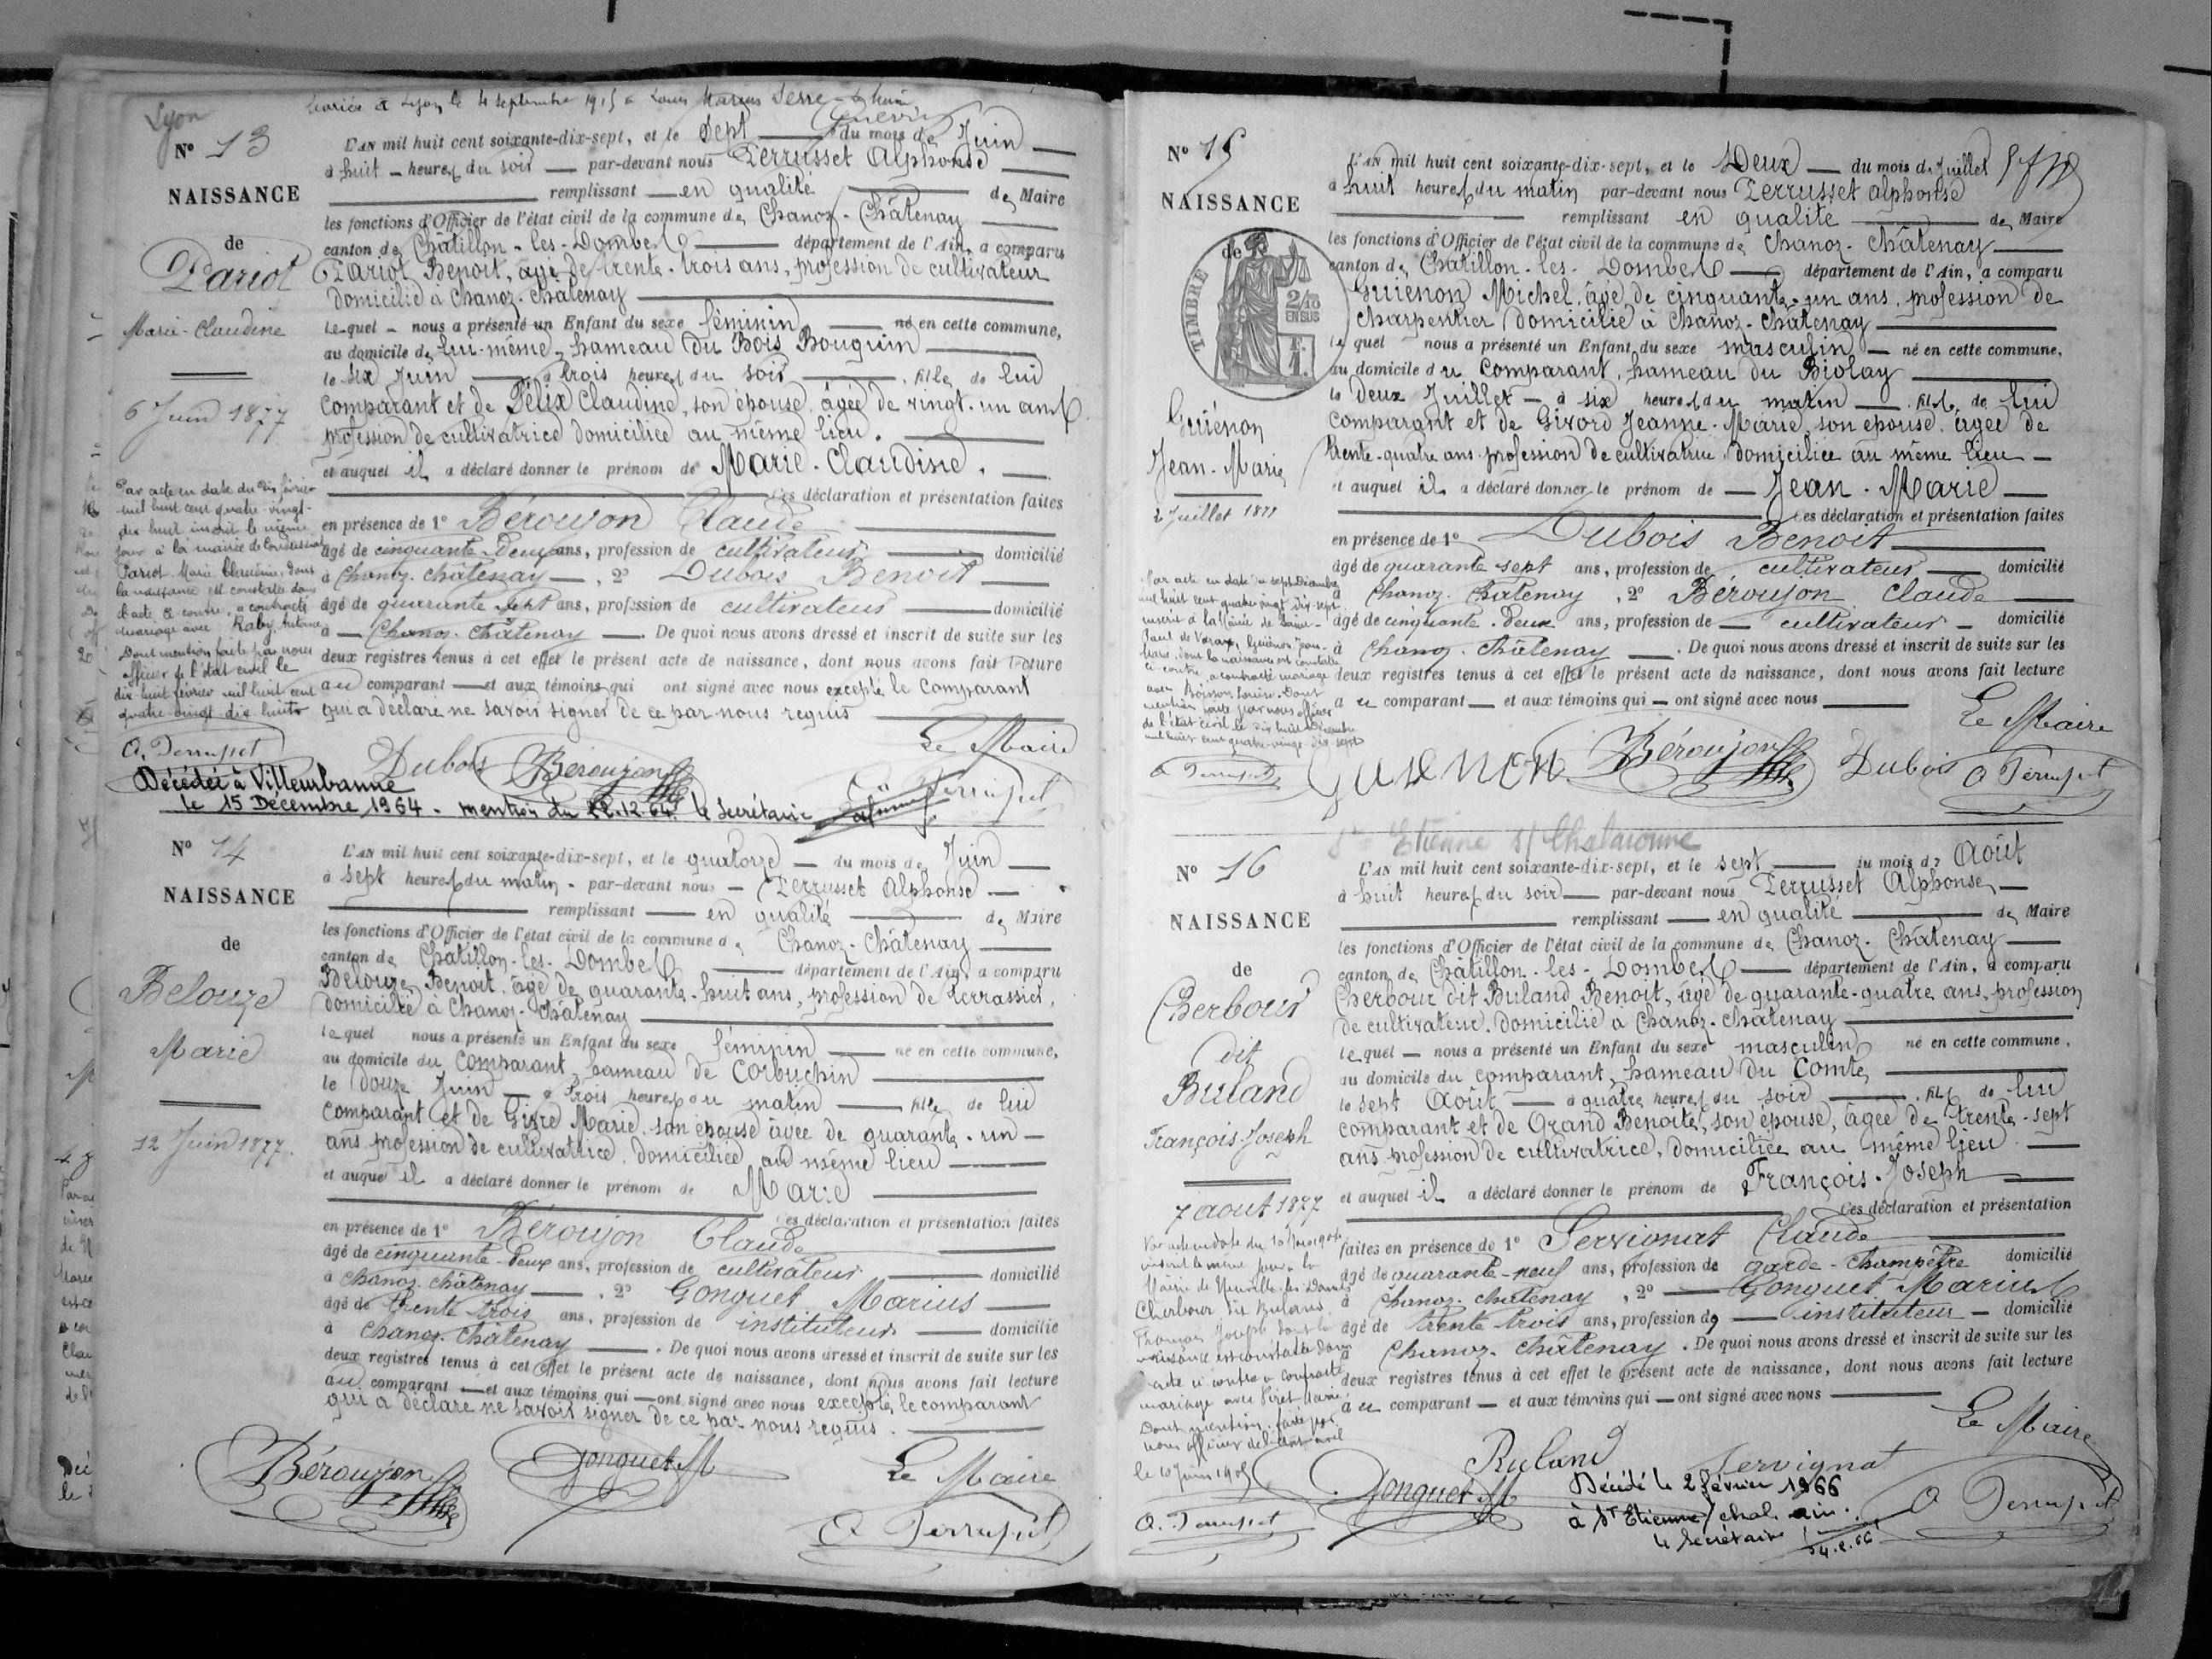 Lyon
mariée à Lyon le 4 septembre 1915 à Louis Marius Serre
N° 13
L'AN mil huit cent soixante-dix-sept, et le sept du mois de Juin
à huit heures du soir par-devant nous Perrusset Alphonse
NAISSANCE
remplissant en qualité de Maire
les fonctions d'Officier de l'état civil de la commune de Chanoz-Châtenay
de
canton de Châtillon-les-Dombes département de l'Ain, a comparu
Pariot
Pariot Benoit, âgé de trente-trois ans, profession de cultivateur
domicilié à Chanoz-Châtenay
Marie-Claudine
lequel nous a présenté un Enfant du sexe féminin né en cette commune,
au domicile de lui-même, hameau du Bois Bouquin
le six Juin à trois heures du soir, fille de lui
6 Juin 1877
comparant et de Félix Claudine, son épouse, âgée de vingt-un ans
profession de cultivatrice domiciliée au même lieu.
et auquel il a déclaré donner le prénom de Marie-Claudine.
Ces déclaration et présentation faites
en présence de 1° Béroujon Claude
âgé de cinquante-deux ans, profession de cultivateur domicilié
à Chanoz-Châtenay, 2° Dubois Benoit
âgé de quarante sept ans, profession de cultivateur domicilié
à Chanoz-Châtenay. De quoi nous avons dressé et inscrit de suite sur les
deux registres tenus à cet effet le présent acte de naissance, dont nous avons fait lecture
au comparant et aux témoins qui ont signé avec nous excepté le comparant
qui a déclaré ne savoir signer de ce par nous requis
Par acte en date du dix février
mil huit cent quatre-vingt-
dix huit inscrit le même
jour à la mairie de
Pariot Marie Claudine, dont
la naissance est constatée dans
l'acte ci-contre, a contracté
mariage avec Raby Antoine
Dont mention faite par nous
officier de l'état civil le
dix huit février mil huit cent
quatre-vingt-dix-huit
A. Perrusset
Dubois Béroujon
Le Maire
A Perrusset
Décédée à Villeurbanne
le 15 Décembre 1964 - mention du 22.12.64 le secrétaire
N° 14
L'AN mil huit cent soixante-dix-sept, et le quatorze du mois de Juin
à sept heures du matin par-devant nous Perrusset Alphonse
NAISSANCE
remplissant en qualité de Maire
les fonctions d'Officier de l'état civil de la commune de Chanoz-Châtenay
de
canton de Châtillon-les-Dombes département de l'Ain, a comparu
Belouze
Belouze Benoit, âgé de quarante-huit ans, profession de terrassier,
domicilié à Chanoz-Châtenay
Marie
lequel nous a présenté un Enfant du sexe féminin né en cette commune,
au domicile du comparant, hameau de Corbuchin
le douze Juin à trois heures du matin fille de lui
12 Juin 1877.
comparant et de Givre Marie son épouse âgée de quarante-un
ans profession de cultivatrice, domiciliée au même lieu
et auquel il a déclaré donner le prénom de Marie
Ces déclaration et présentation faites
en présence de 1° Béroujon Claude
âgé de cinquante-deux ans, profession de cultivateur domicilié
à Chanoz-Châtenay, 2° Gonguet Marius
âgé de trente trois ans, profession de instituteur domicilié
à Chanoz-Châtenay. De quoi nous avons dressé et inscrit de suite sur les
deux registres tenus à cet effet le présent acte de naissance, dont nous avons fait lecture
au comparant et aux témoins qui ont signé avec nous excepté le comparant
qui a déclaré ne savoir signer de ce par nous requis.
Béroujon Gonguet M
Le Maire
A Perrusset
N° 15
L'AN mil huit cent soixante-dix-sept, et le Deux du mois de Juillet
à huit heures du matin par-devant nous Perrusset Alphonse
NAISSANCE
remplissant en qualité de Maire
les fonctions d'Officier de l'état civil de la commune de Chanoz-Châtenay
de
TIMBRE
2/10
EN SUS
F.
1.
canton de Châtillon-les-Dombes département de l'Ain, a comparu
Guiénon Michel, âgé de cinquante-un ans, profession de
charpentier domicilié à Chanoz-Châtenay
lequel nous a présenté un Enfant du sexe masculin né en cette commune,
au domicile du comparant, hameau du Biolay
le Deux Juillet à six heures du matin fils de lui
Guiénon
comparant et de Givord Jeanne-Marie, son épouse, âgée de
Jean-Marie
trente-quatre ans profession de cultivatrice domiciliée au même lieu
et auquel il a déclaré donner le prénom de Jean-Marie
2 Juillet 1877
Ces déclaration et présentation faites
en présence de 1° Dubois Benoit
âgé de quarante sept ans, profession de cultivateur domicilié
à Chanoz-Châtenay, 2° Béroujon Claude
âgé de cinquante-deux ans, profession de cultivateur domicilié
à Chanoz-Châtenay. De quoi nous avons dressé et inscrit de suite sur les
deux registres tenus à cet effet le présent acte de naissance, dont nous avons fait lecture
au comparant et aux témoins qui ont signé avec nous
Par acte en date du sept Décembre
mil huit cent quatre vingt dix-sept
inscrit à la Mairie de Saint-
Paul de Varax, Guiénon Jean-
Marie, dont la naissance est constatée
ci-contre, a contracté mariage
avec Boisson Louise. Dont
mention faite par nous officier
de l'état civil le dix huit Décembre
mil huit cent quatre-vingt-dix-sept
A Perrusset
Le Maire
GUIENON Béroujon Dubois A Perrusset
St Etienne s/ Chalaronne
N° 16
L'AN mil huit cent soixante-dix-sept, et le sept du mois de Août
à huit heures du soir par-devant nous Perrusset Alphonse
NAISSANCE
remplissant en qualité de Maire
les fonctions d'Officier de l'état civil de la commune de Chanoz-Châtenay
de
canton de Châtillon-les-Dombes département de l'Ain, a comparu
Cherbour
Cherbour dit Buland Benoit, âgé de quarante-quatre ans, profession
de cultivateur, domicilié à Chanoz-Châtenay
dit
lequel nous a présenté un Enfant du sexe masculin né en cette commune,
Buland
au domicile du comparant, hameau du Comte
le sept Août à quatre heures du soir fils de lui
François-Joseph
comparant et de Grand Benoite, son épouse, âgée de trente-sept
ans profession de cultivatrice, domiciliée au même lieu
7 août 1877
et auquel il a déclaré donner le prénom de François-Joseph
Ces déclaration et présentation
faites en présence de 1° Servignat Claude
âgé de quarante-neuf ans, profession de garde-champêtre domicilié
à Chanoz-Châtenay, 2° Gonguet Marius
âgé de trente trois ans, profession de instituteur domicilié
à Chanoz-Châtenay. De quoi nous avons dressé et inscrit de suite sur les
deux registres tenus à cet effet le présent acte de naissance, dont nous avons fait lecture
au comparant et aux témoins qui ont signé avec nous
Par acte en date du 10
inscrit le même jour à la
Mairie de Neuville les Dames
Cherbour dit Buland
François Joseph dont la
naissance est constatée dans
l'acte ci-contre a contracté
mariage avec
Dont mention faite par
nous officier de l'état civil
le 10 Juin 1905
A. Perrusset
Le Maire
Buland Servignat
Gonguet M A Perrusset
Décédé le 2 février 1966
à St Etienne/chal. ain.
le Secrétaire